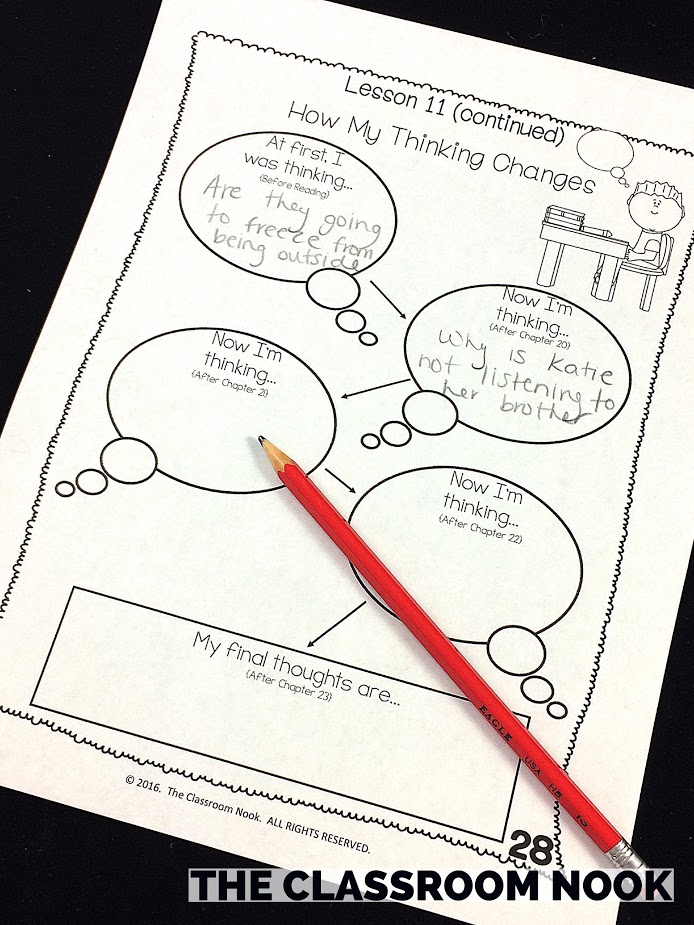 Lesson 11 (continued)
How My Thinking Changes
At first, I
was thinking...
(Before Reading)
Are they going
to freeze from
being outside
Now I'm
thinking...
(After Chapter 20)
Why is Katie
not listening to
her brother
Now I'm
thinking...
(After Chapter 21)
Now I'm
thinking...
(After Chapter 22)
My final thoughts are...
(After Chapter 23)
EAGLE USA HB 2
© 2016. The Classroom Nook. ALL RIGHTS RESERVED.
28
THE CLASSROOM NOOK